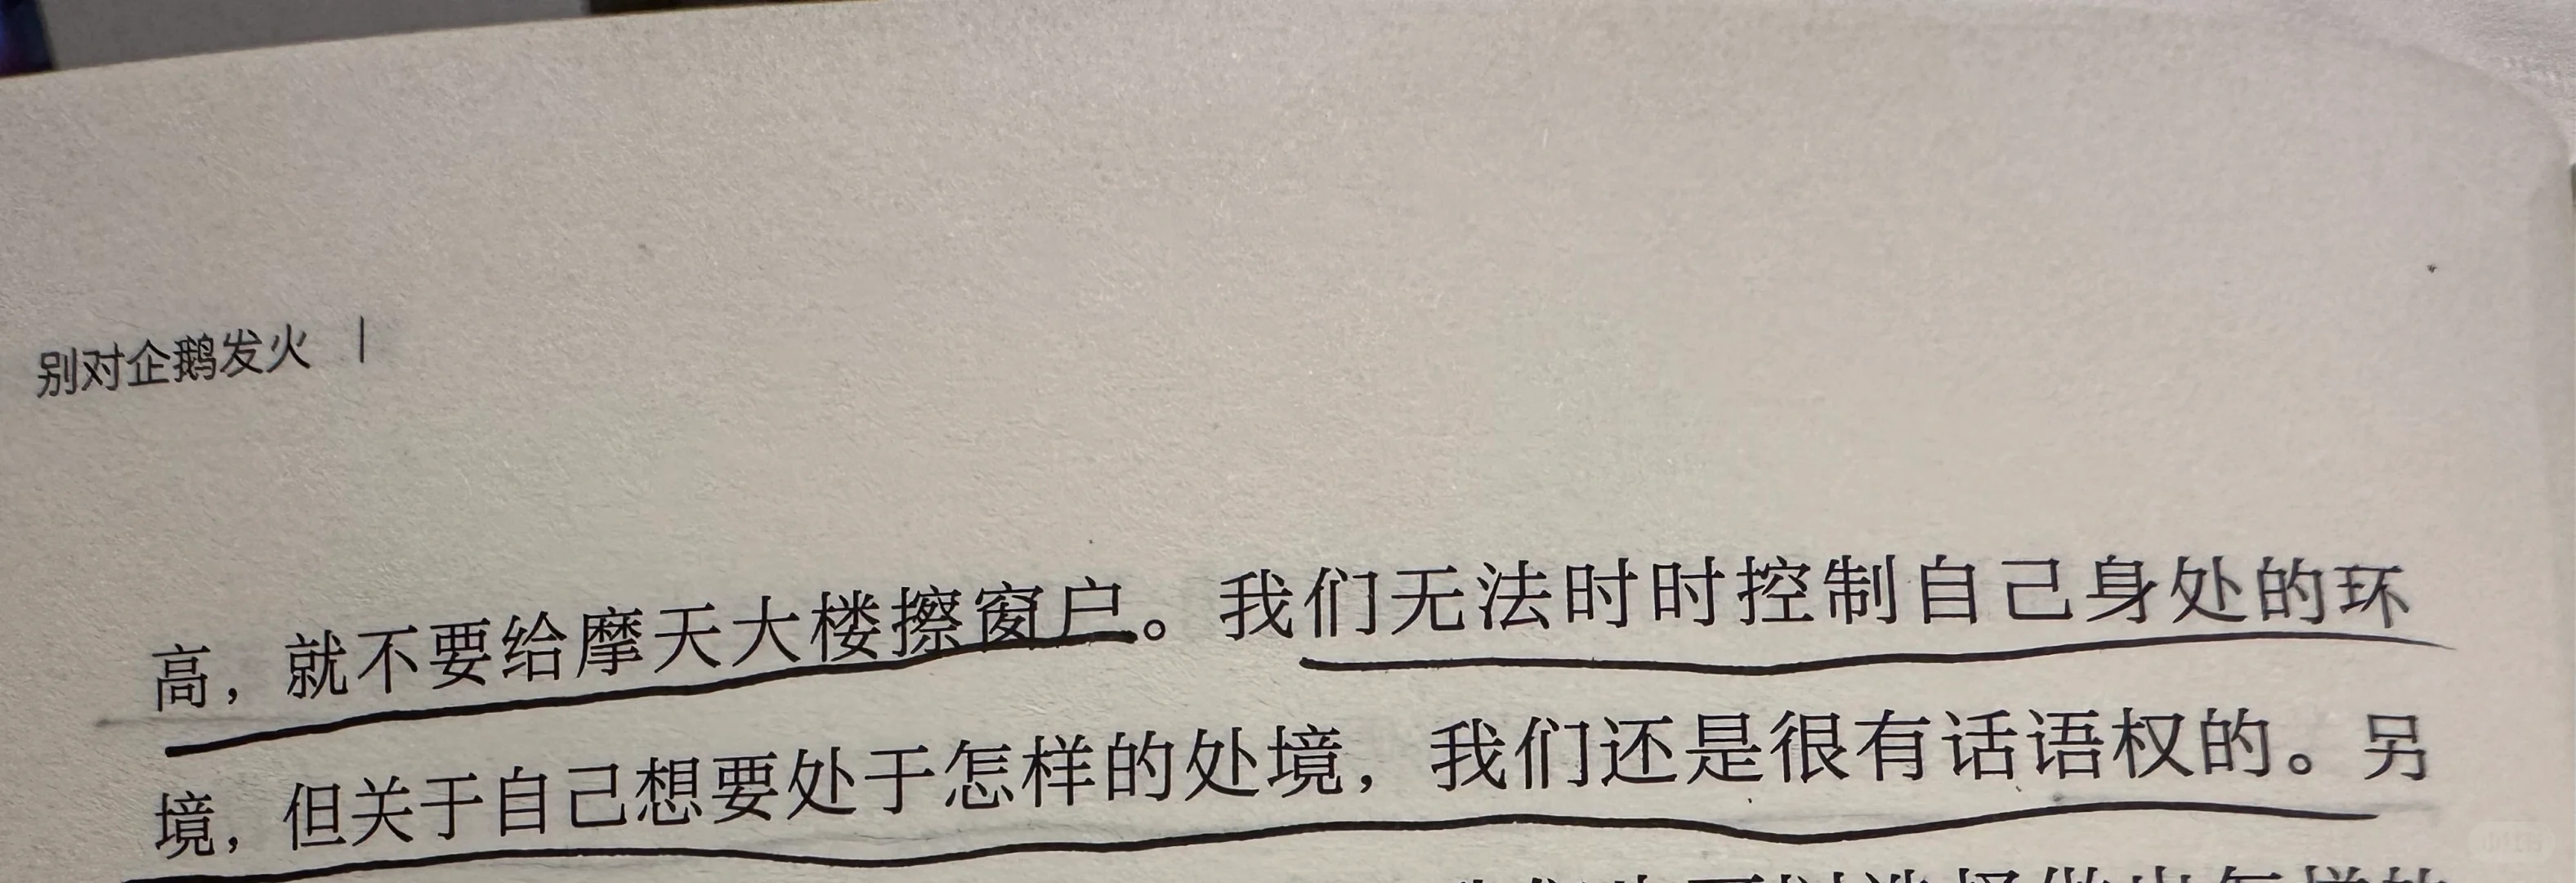 别对企鹅发火 |
高，就不要给摩天大楼擦窗户。我们无法时时控制自己身处的环
境，但关于自己想要处于怎样的处境，我们还是很有话语权的。另